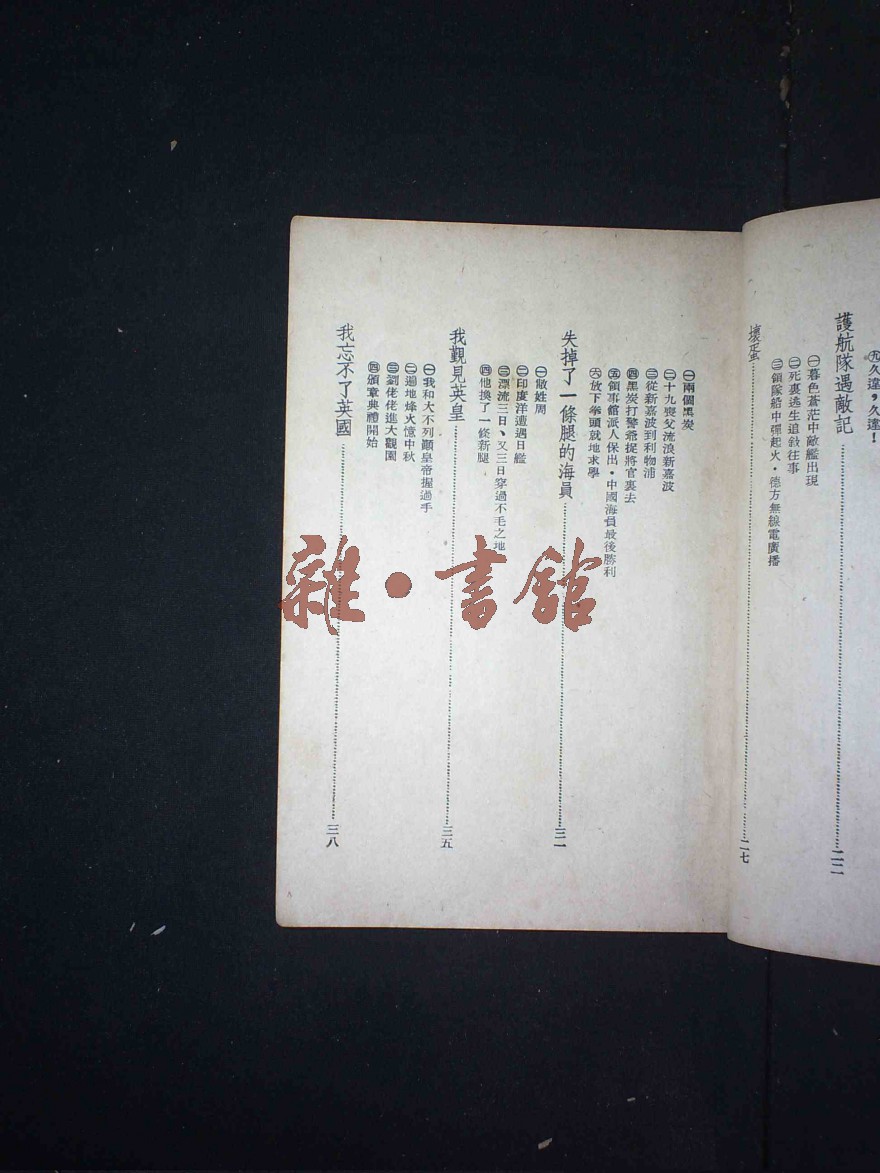 ㊈久違，久違！
護航隊遇敵記……二二
㊀暮色蒼茫中敵艦出現
㊁死裏逃生追敍往事
㊂領隊船中彈起火·德方無線電廣播
壞蛋……二七
㊀兩個黑炭
㊁十九喪父流浪新嘉波
㊂從新嘉波到利物浦
㊃黑炭打警爺捉將官裏去
㊄領事館派人保出·中國海員最後勝利
㊅放下拳頭就地求學
失掉了一條腿的海員……三一
㊀敝姓周
㊁印度洋遭遇日艦
㊂漂流三日、又三日穿過不毛之地
㊃他換了一條新腿
我覲見英皇……三五
㊀我和大不列顛皇帝握過手
㊁遍地烽火憶中秋
㊂劉佬佬進大觀園
㊃頒章典禮開始
我忘不了英國……三八
雜·書館